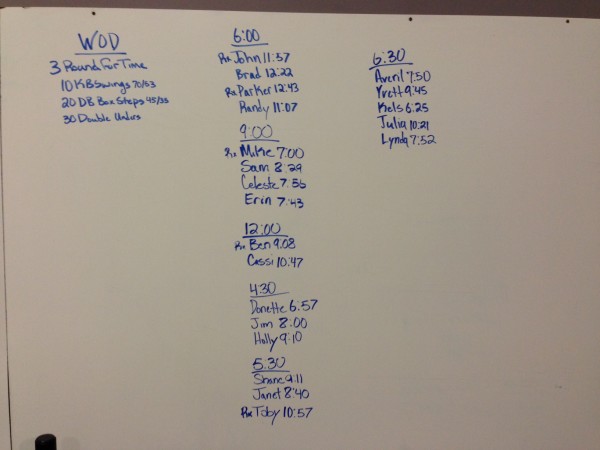 WOD
3 Round For Time
10 KB Swings 70/53
20 DB Box Steps 45/35
30 Double Unders
6:00
Rx John 11:57
Brad 12:22
Rx Parker 12:43
Randy 11:07
9:00
Rx Mike 7:00
Sam 8:29
Celeste 7:56
Erin 7:43
12:00
Rx Ben 9:08
Cassi 10:47
4:30
Donette 6:57
Jim 8:00
Holly 9:10
5:30
Shane 9:11
Janet 8:40
Rx Toby 10:57
6:30
Averil 7:50
Yvett 9:45
Kels 6:25
Julia 10:21
Lynda 7:52